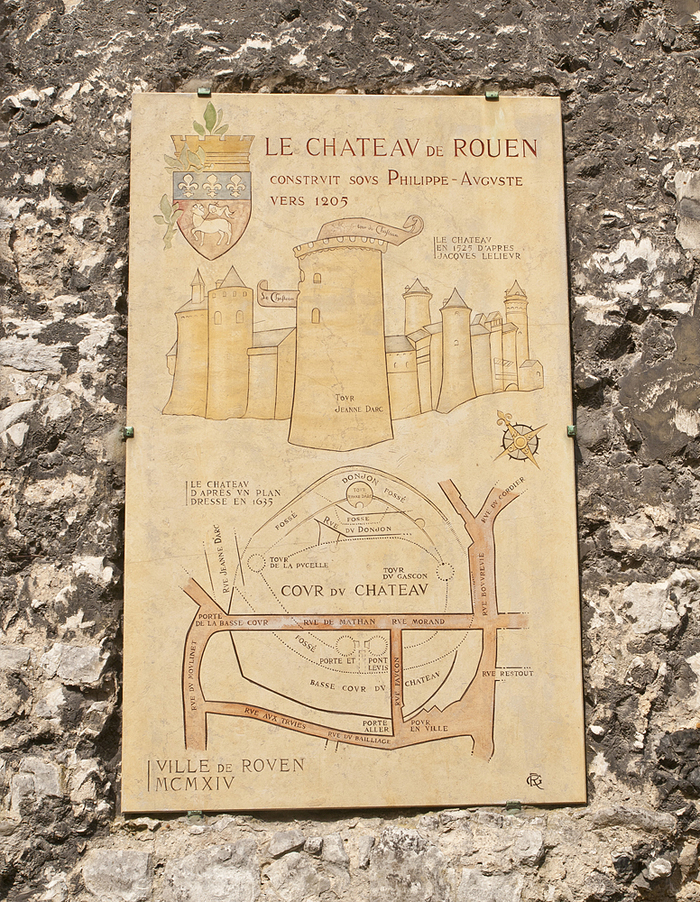 LE CHATEAV DE ROUEN
CONSTRVIT SOVS PHILIPPE-AVGVSTE
VERS 1205
LE CHATEAV
EN 1525 D'APRES
JACQVES LELIEVR
TOVR
JEANNE DARC
LE CHATEAV
D'APRES VN PLAN
DRESSE EN 1635
DONJON
FOSSÉ
FOSSÉ
FOSSE
RVE DV DONJON
RVE JEANNE DARC
TOVR
DE LA PVCELLE
TOVR
DV GASCON
COVR DV CHATEAV
RVE DV CORDIER
RVE BOVVREVIL
PORTE
DE LA BASSE COVR
RVE DE MATHAN
RVE MORAND
FOSSÉ
PORTE ET PONT
LEVIS
BASSE COVR DV CHATEAV
RVE FAVCON
RVE RESTOUT
RVE DV MOVLINET
RVE AUX TRVIES
RVE DV BAILLIAGE
PORTE POVR
ALLER EN VILLE
VILLE DE ROVEN
MCMXIV